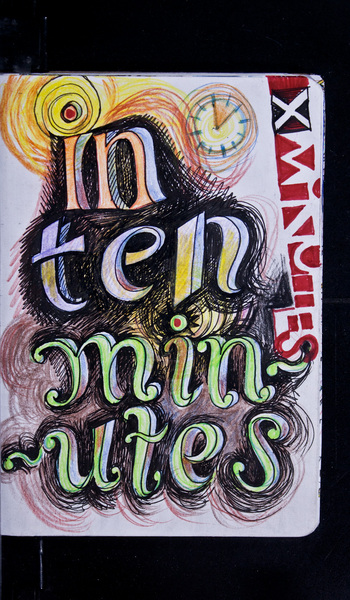 in
ten
min-
~utes
X MiNUTES